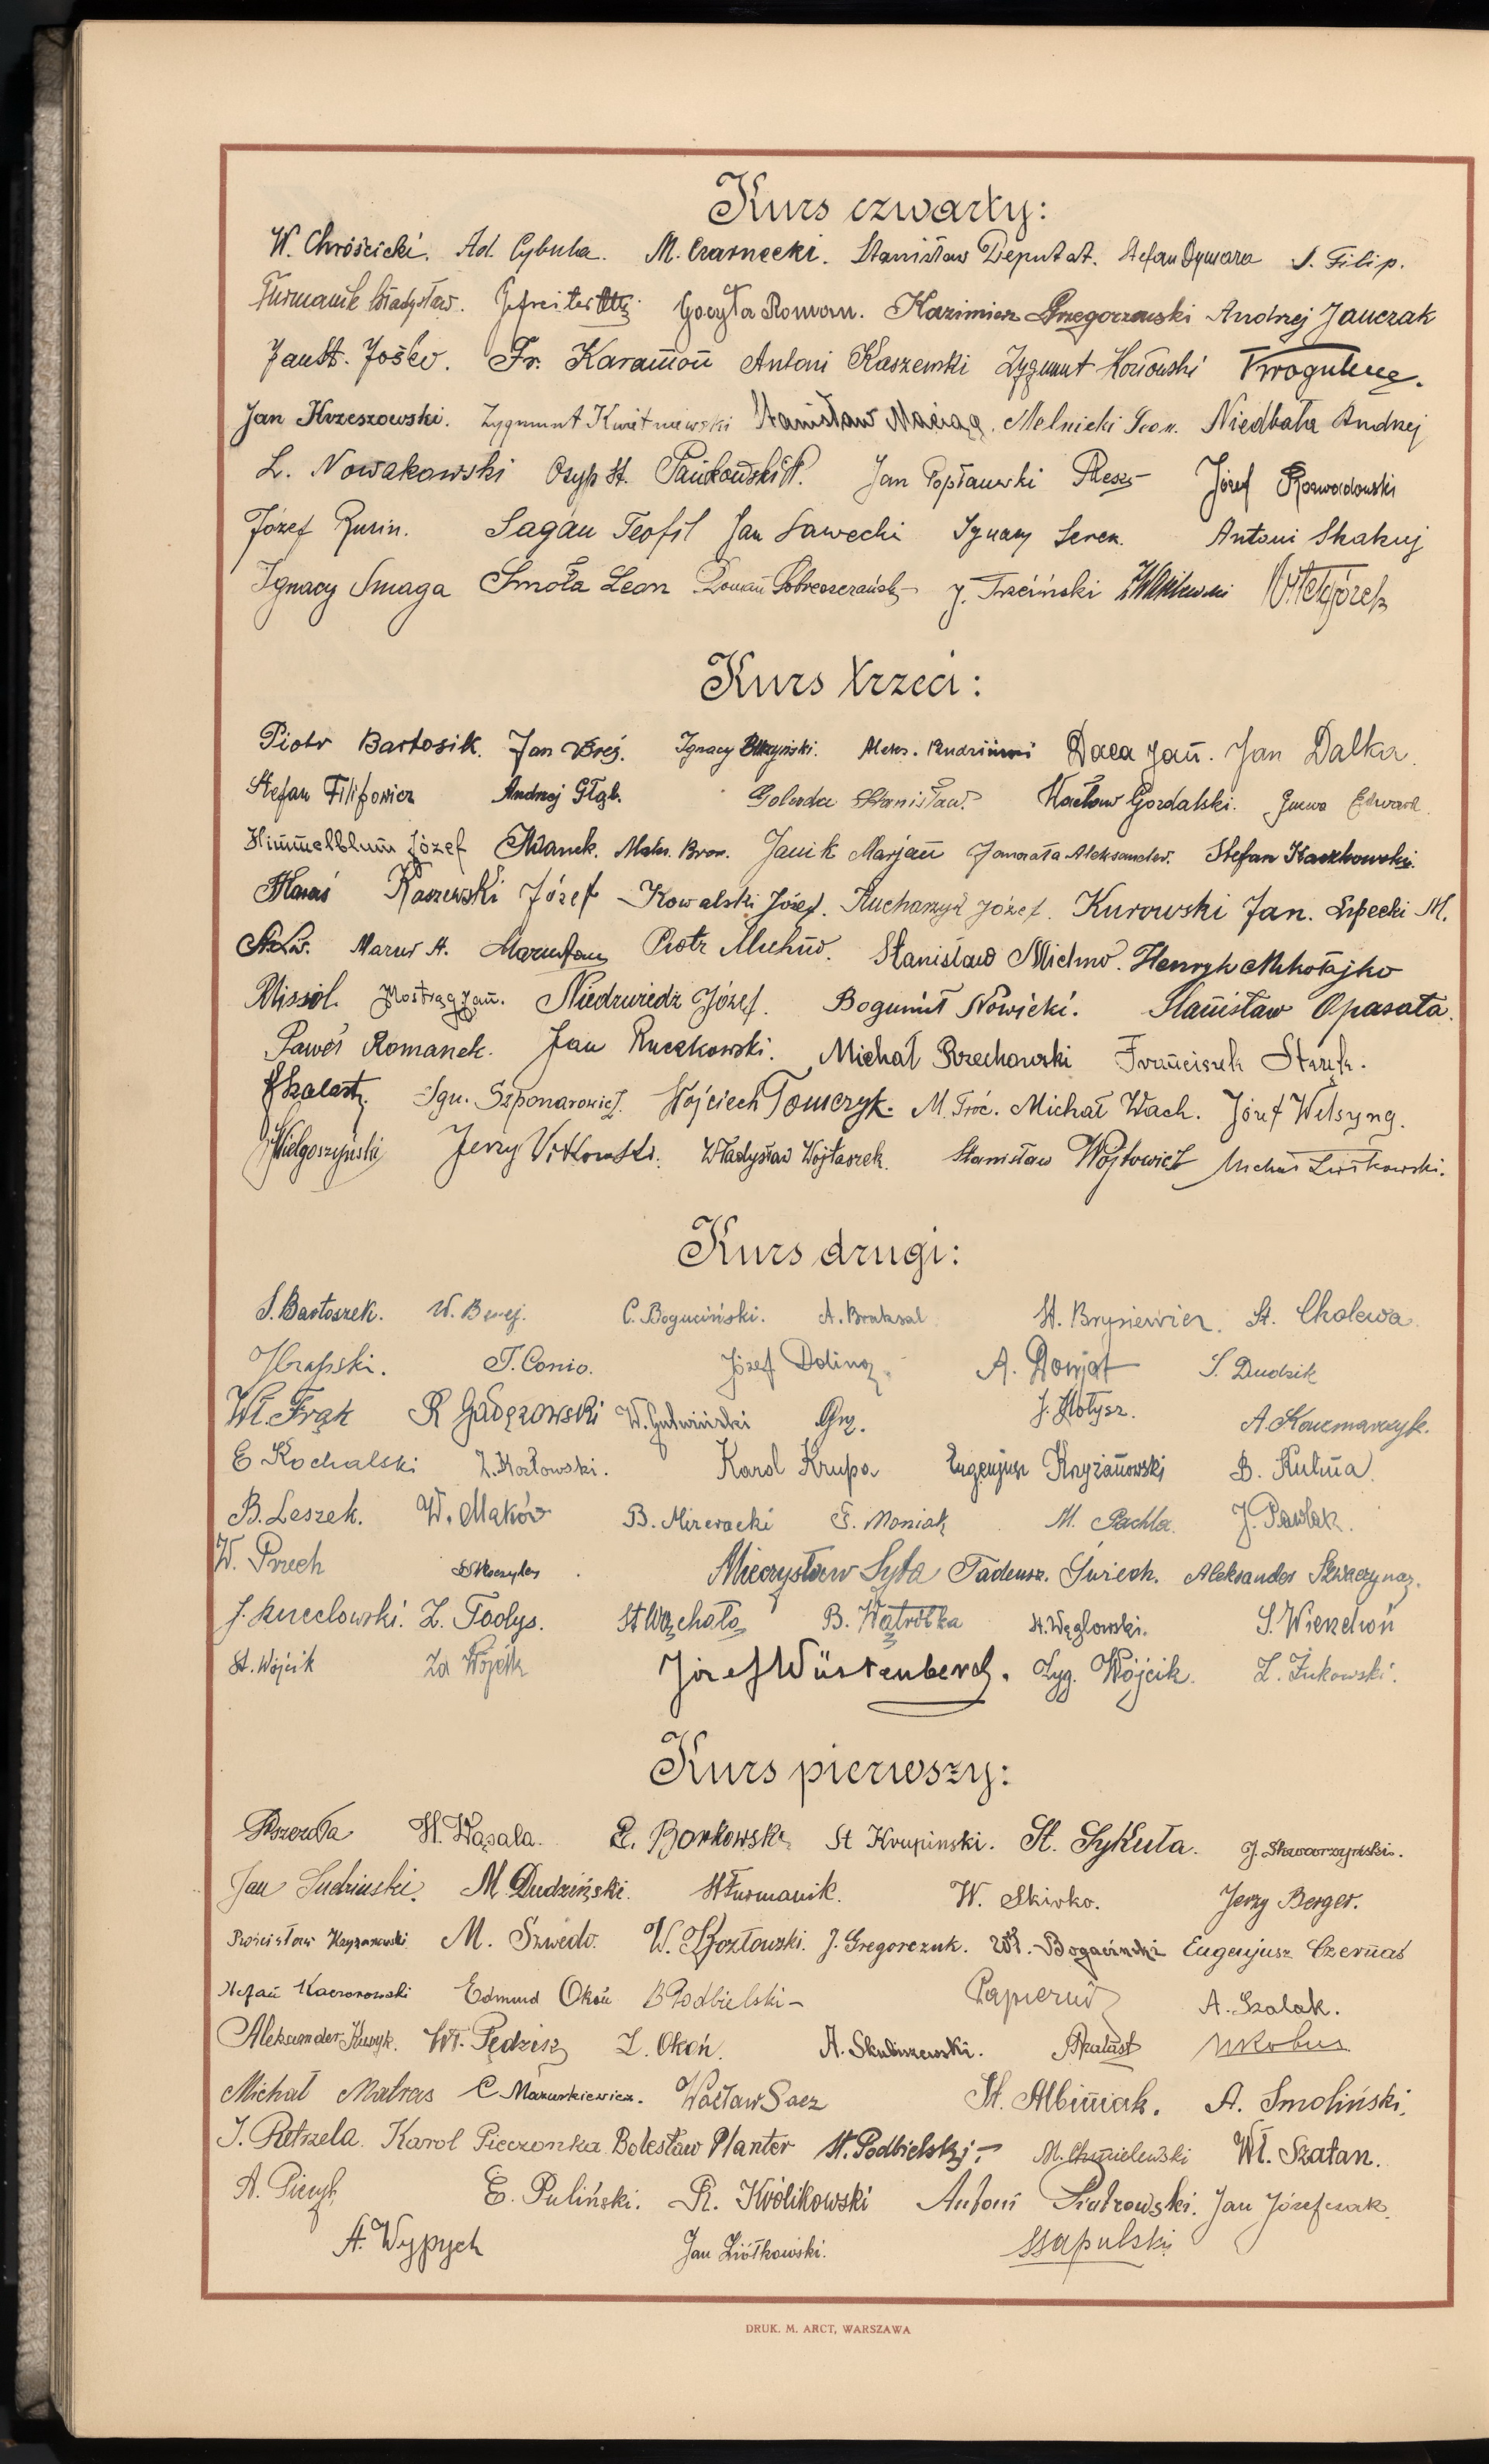 Kurs czwarty:
W. Chróścicki. Ad. Cybula. M. Czarnecki. Stanisław Deputat. Stefan Dymara S. Filip.
Furmanik Władysław. Gefreiter Gocyła Roman. Kazimierz Grzegorzewski Andrzej Janczak
Jan St. Jośko. Fr. Karamoń Antoni Kaszewski Zygmunt Kozłowski
Jan Krzeszowski. Zygmunt Kwietniewski Stanisław Maciąg. Melnicki Leon. Niedbała Andrzej
L. Nowakowski Osyp St. Pańkowski Jan Popławski Resz Józef Rozwadowski
Józef Rusin. Sagan Teofil Jan Sawecki Ignacy Seren. Antoni Skakuj
Ignacy Smaga Smoła Leon Roman J. Trzciński Witek Józef
Kurs trzeci:
Piotr Bartosik. Jan Breś. Ignacy Aleks. Daca Jan. Jan Dalka.
Stefan Filipowicz Andrzej Głąb. Golenda Stanisław. Wacław Gozdalski. Edward
Himmelblum Józef Iwanek. Janik Marjan Aleksander. Stefan Kaczkowski.
Karaś Kaszewski Józef Kowalski Józef. Kucharzyk Józef. Kurowski Jan. Lipecki M.
Marzec St. Piotr Michno. Stanisław Michno. Henryk Mikołajko
Missol. Mostrąg Jan. Niedzwiedź Józef. Bogumił Nowicki. Stanisław Opasała.
Paweł Romanek. Jan Ruczkowski. Michał Rzechowski Franciszek
Skalast. Ign. Szponarowicz. Wojciech Tomczyk. M. Troć. Michał Wach. Józef Welsyng.
Wielgoszyński Jerzy Witkowski. Władysław Wojtaszek. Stanisław Wójtowicz Michał
Kurs drugi:
S. Bartoszek. W. Berej. C. Boguciński. A. Braksal. St. Brysiewicz. St. Cholewa.
T. Conio. Józef Dolina A. Donjat S. Dudzik
Wł. Frąk R. Gadęzowski W. Gutwiński J. Hołysz. A. Kaczmarczyk.
E Kochalski Z. Kozłowski. Karol Krupa Eugenjusz Knyżanowski B. Kulma.
B. Leszek. W. Maków B. Mizeracki F. Moniak M. Pachla. J. Pawlak.
W. Przech Mieczysław Syta Tadeusz. Świech. Aleksander Szwaczyna.
Z. Todys. St Wąchała B. Wątróbka St. Węglowski. S. Wierzchoń
St. Wójcik Zd Wójcik Józef Wüstenberg. Zyg. Wójcik. Z. Żukowski.
Kurs pierwszy:
H. Wąsala. Z. Borkowski St Krupinski. St. Sykuła. J. Skwarzyński.
Jan Sudziński. M. Dudziński. St Furmanik. W. Skirko. Jerzy Berger.
Krzyżanowski M. Szwedo. W. Kozłowski. J. Gregorczuk. Wł. Bogaciński Eugenjusz Czernaś
Stefan Kaczorowski Edmund Okoń B Podbielski Papierni A. Szalak.
Aleksander Kusyk. Wł. Pędzisz Z. Okoń. A. Skubiszewski. Skałast M Kobus
Michał Matras C. Mazurkiewicz. Wacław Sacz St. Albiniak. A. Smoliński.
J. Retszela. Karol Pieczonka. Bolesław Planter St. Podbielski M. Chmielewski Wł. Szatan.
E. Puliński. R. Królikowski Antoni Piotrowski. Jan Józefczak.
A. Wypych Jan Ziółkowski. Szapulski
DRUK. M. ARCT, WARSZAWA